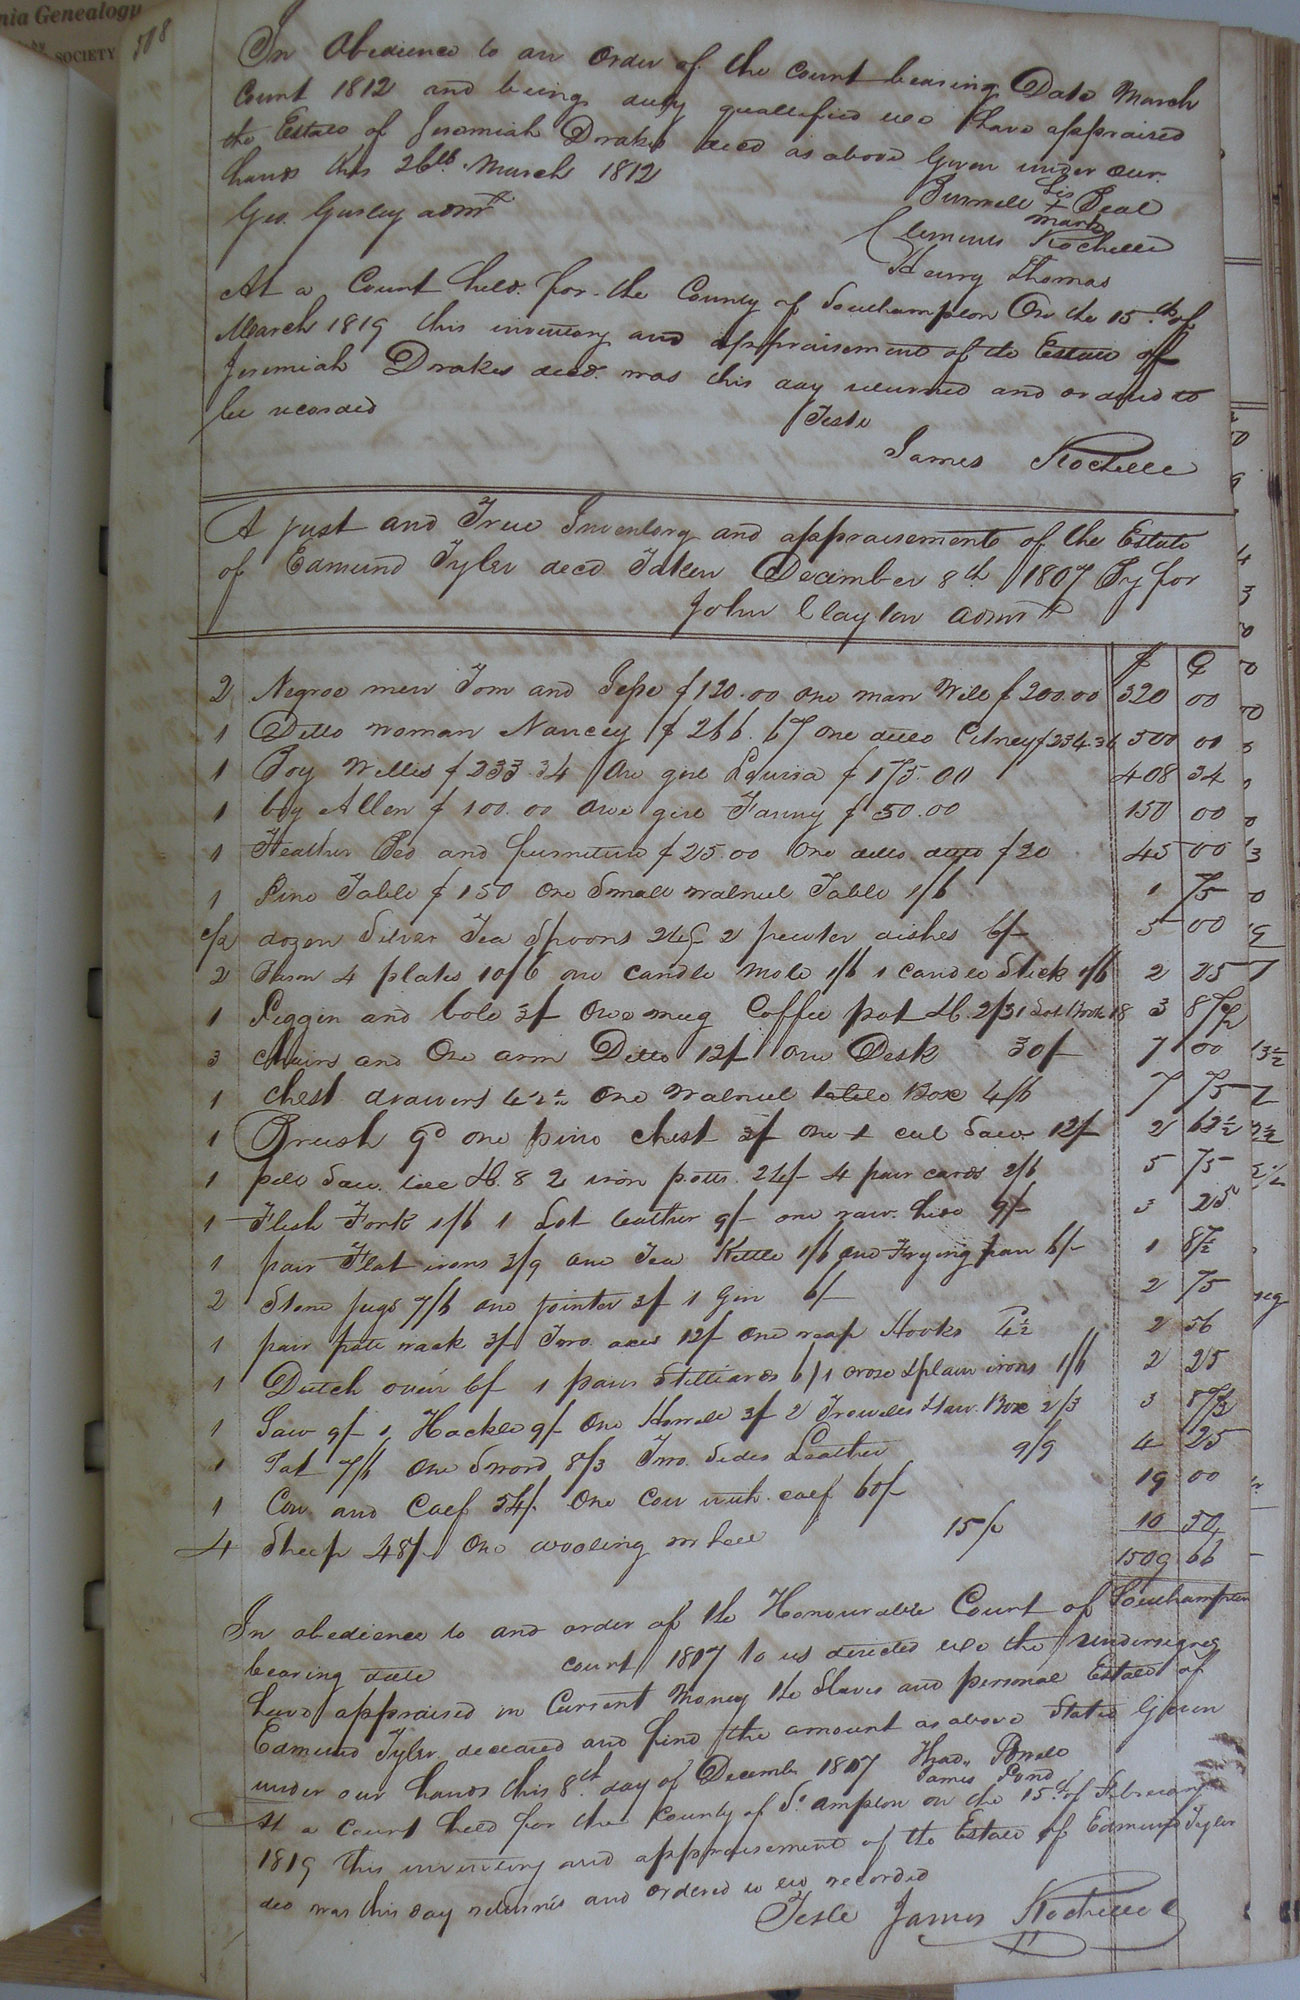 nia Genealogy
SOCIETY
508
In Obedience to an order of the court bearing Date March
Court 1812 and being duly quallified we have appraised
the Estate of Jeremiah Drake decd as above Given under our
hands this 26th March 1812
Burwell his Beal
x
mark
Geo. Gurley admr
Clements Rochelle
Henry Thomas
At a Court held for the County of Southampton On the 15th of
March 1819 this inventory and appraisement of the Estate of
Jeremiah Drakes decd. was this day returned and ordered to
be recorded
Teste
James Rochelle
A just and True Inventory and appraisement of the Estate
of Edmund Tyler decd Taken December 8th 1807 By for
John Clayton admr
$ C
2 Negroe men Tom and Jesse $120.00 one man Will $200.00 320 00
1 Ditto woman Nancey $266.67 one ditto Citney $234.34 500 00
1 Boy Willis $233.34 One girl Louisa $175.00 408 34
1 boy Allen $100.00 one girl Fanny $50.00 150 00
1 Feather Bed and furniture $25.00 One ditto ditto $20 45 00
1 Pine Table $1 50 one Small walnut Table 1/6 1 75
1/2 dozen Silver Tea Spoons 24/ 2 pewter dishes 6/ 5 00
2 Basm 4 plates 10/6 one candle mole 1/6 1 candle Stick 1/6 2 25
1 Piggin and bole 3/ One mug Coffee pot &c 2/3 1 Lot Books 18 3 87 1/2
3 chairs and One arm Ditto 12/ one Desk 30/ 7 00
1 chest drawers 42 One walnut table Box 4/6 7 75
1 Brush 9d one pine chest 3/ one + cut Saw 12/ 2 62 1/2
1 pill Saw &c 8 2 iron potts 24/ 4 pair cards 2/6 5 75
1 Flesh Fork 1/6 1 Lot leather 9/ one raw hide 9/ 3 25
1 pair Flat irons 3/9 one Tea Kettle 1/6 one Frying pan 6/ 1 87 1/2
2 Stone jugs 7/6 one pointer 3/ 1 Gin 6/ 2 75
1 pair rack 3/ Two axes 12/ one reap Hooks 4 1/2 2 56
1 Dutch oven 6/ 1 pair Stilliards 6/ 1 croze & plain irons 1/6 2 25
1 Saw 9/ 1 Hackle 9/ One 3/ 2 Trowels & Box 2/3 3 87 1/2
1 7/6 One Sword 8/3 Two Sides Leather 9/9 4 25
1 Cow and Calf 54/ One Cow with calf 60/ 19 00
4 Sheep 48/ One wooling wheel 15/ 10 50
1509 66
In obedience to and order of the Honourable Court of Southampton
bearing date court 1807 to us directed we the undersigned
have appraised in Current money the Slaves and personal Estate of
Edmund Tyler deceased and find the amount as above Stated Given
under our hands this 8th day of December 1807 Thad. Powell
James Pond
At a Court held for the County of So ampton on the 15th of February
1819 this inventory and appraisement of the Estate of Edmund Tyler
decd was this day returned and ordered to be recorded
Teste James Rochelle